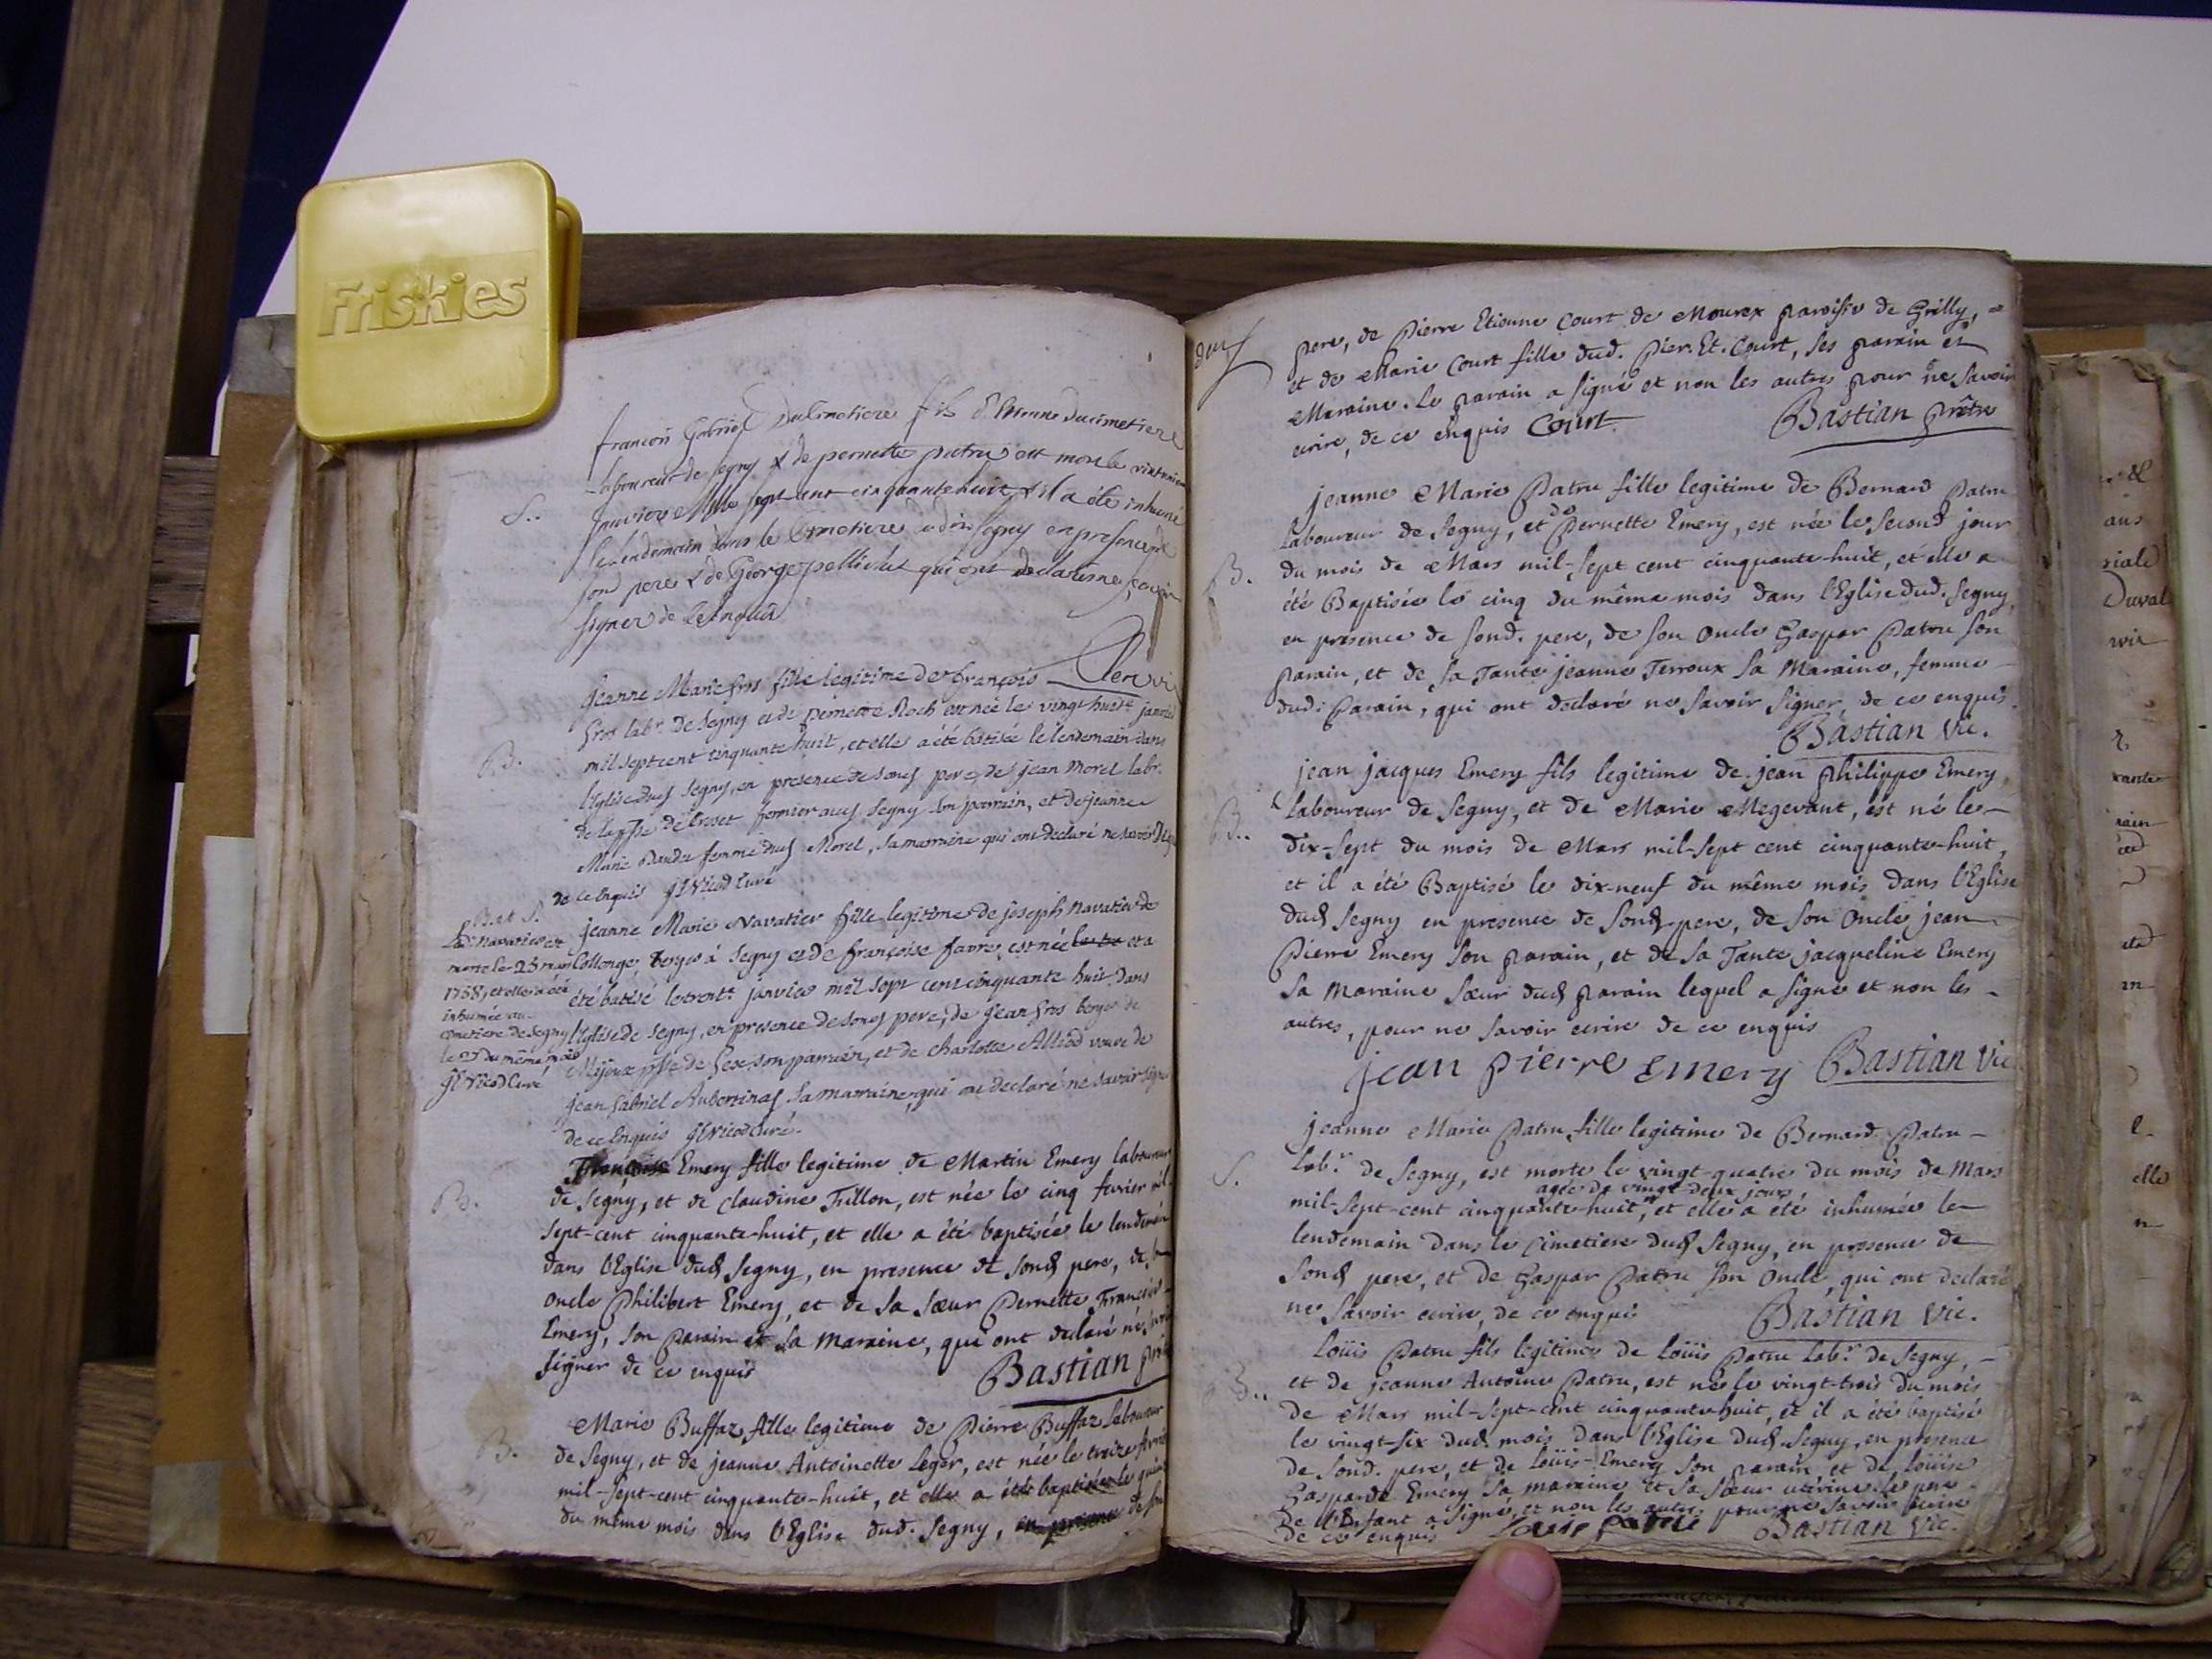 Friskies
françois Gabriel Ducimetiere fils d'Etienne ducimetiere
laboureur de segny & de pernette patru est mort le
janvier Mille sept cent cinquante huit, & il a été inhumé
le lendemain dans le Cimetiere dudit segny en presence de
son pere & de George pellichet qui ont declaré ne savoir
signer de ce enquis
S..
Jeanne Marie Gros fille legitime de françois
Gros labr. de Segny et de pernette Roch est née le vingt huit janvier
mil sept cent cinquante huit, et elle a été batisée le lendemain dans
l'Eglise dud Segny, en presence de soud pere, de jean Morel labr.
de la psse de Croset fermier aud Segny son parrain, et de jeanne
Marie femme dud Morel, sa marraine qui ont declaré ne savoir
de ce enquis Nicod Curé
B.
B. et S.
Lad. Navatier est
morte le 25 mars
1758, et elle a été
inhumée au
cimetiere de Segny
le 27 du même mois
Nicod Curé
jeanne Marie Navatier fille legitime de joseph Navatier de
Collonge, berger à Segny et de françoise favre, est née et a
été batisé le trent. janvier mil sept cent cinquante huit dans
l'Eglise de Segny, en presence de soud pere, de jean Gros berger de
Mijoux psse de Gex son parrain, et de charlotte Alliod veuve de
jean Gabriel sa marraine, qui ont declaré ne savoir signer
de ce enquis Nicod curé.
B.
Françoise Emery fille legitime de Martin Emery laboureur
de Segny, et de Claudine Trillon, est née le cinq fevrier mil
sept-cent cinquante-huit, et elle a été baptisée le lendemain
dans l'Eglise dud Segny, en presence de soud pere, de son
oncle Philibert Emery, et de sa sœur Pernette Françoise
Emery, son parain et sa maraine, qui ont declaré ne savoir
signer de ce enquis
Bastian prêtre
B.
Marie Buffaz fille legitime de Pierre Buffaz laboureur
de Segny, et de jeanne Antoinette Leger, est née le treize fevrier
mil-sept-cent cinquante-huit, et elle a été baptisée le
du même mois dans l'Eglise dud. Segny, en presence de son
dud
pere, de Pierre Etienne Court de Mourex paroisse de Grilly,
et de Marie Court fille dud. Pier. Et. Court, ses parain et
Maraine. Le parain a signé et non les autres pour ne savoir
ecrire, de ce enquis Court Bastian prêtre
B.
jeanne Marie Patru fille legitime de Bernard Patru
Laboureur de Segny, et de Pernette Emery, est née le second jour
du mois de Mars mil-sept cent cinquante-huit, et elle a
été Baptisée le cinq du même mois dans l'Eglise dud. Segny,
en presence de soud. pere, de son Oncle Gaspar Patru son
parain, et de sa Tante jeanne Terroux sa Maraine, femme
dud. Parain, qui ont declaré ne savoir signer, de ce enquis.
Bastian vic.
B..
jean jacques Emery fils legitime de jean philippe Emery,
Laboureur de Segny, et de Marie Megevant, est né le
dix-sept du mois de Mars mil-sept cent cinquante-huit,
et il a été Baptisé le dix-neuf du même mois dans l'Eglise
dud Segny en presence de soud pere, de son Oncle jean
Pierre Emery son parain, et de sa Tante jacqueline Emery
sa Maraine sœur dud parain lequel a signé et non les
autres, pour ne savoir ecrire de ce enquis
jean pierre emery Bastian vic
S.
jeanne Marie Patru fille legitime de Bernard Patru
Labr. de Segny, est morte le vingt-quatre du mois de Mars
agée de vingt-deux jours
mil-sept-cent cinquante-huit, et elle a été inhumée le
lendemain dans le Cimetiere dud Segny, en presence de
soud pere, et de Gaspar Patru son Oncle, qui ont declaré
ne savoir ecrire, de ce enquis Bastian vic.
B..
Loüis Patru fils legitime de Loüis Patru Labr. de Segny,
et de jeanne Antoine Patru, est né le vingt-trois du mois
de Mars mil-sept-cent cinquante-huit, et il a été baptisé
le vingt-six dud mois dans l'Eglise dud Segny, en presence
de soud. pere, et de Loüis Emery son parain et de Louise
Gasparde Emery sa maraine et sa sœur uterine. le pere
de l'Enfant a signé, et non les autres pour ne savoir ecrire
de ce enquis Louis patru Bastian vic.
Duval